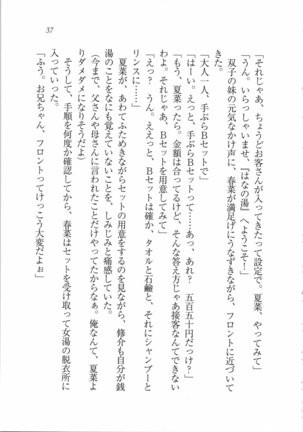 37
「それじゃあ、ちょうどお客さんが入ってきたって設定で。夏菜、やってみて」
「うん。いらっしゃいませ、『はなの湯』へようこそ！」
　双子の妹の元気なかけ声に、春菜が満足げにうなずきながら、フロントに近づいて
きた。
「大人一人、手ぶらBセットで」
「はーい。ええっと、手ぶらBセットって……あっ、あれ？　五百五十円だっけ？」
「もう、夏菜ったら。金額は合ってるけど、そんな答え方じゃあ接客なんてできない
わよ。それじゃあ、Bセットを用意してみて」
「えっ？　うん。ええっと、Bセットは確か、タオルと石鹸と、それにシャンプーと
リンスに……」
　夏菜が、あわてふためきながらセットの用意をするのを見ながら、修介も自分が銭
湯のことをなにも覚えていないことを、しみじみと痛感していた。
（今まで、父さんや母さんに言われたことだけやってたからなぁ。俺なんて、夏菜よ
りダメダメになりそうだよ）
　そうして、手順を何度か確認してから、春菜はセットを受け取って女湯の脱衣所に
入っていった。
「ふう。お兄ちゃん、フロントってけっこう大変だよぉ」